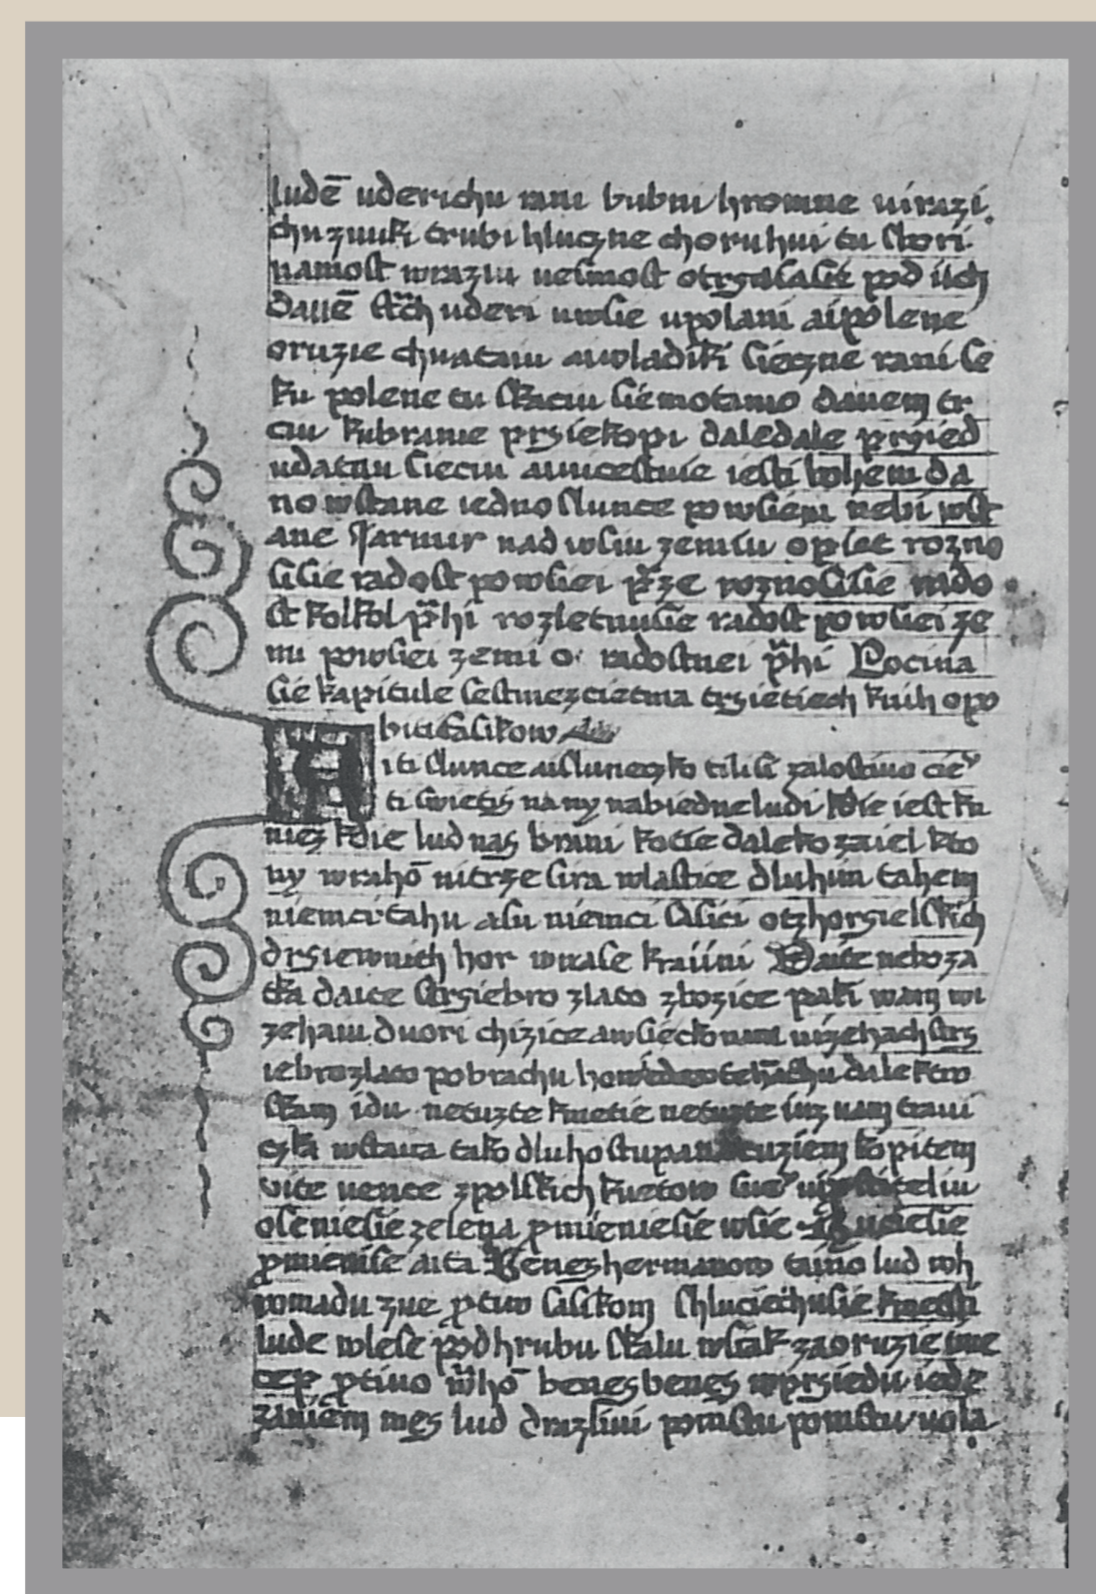 ludē uderichu rani bubni hromne uirazi
chu zuuki trubi hluczne choruhui tu sbori
namost wrazin uesmost otrzasasie pod nich
dauē stch uderi uwsie upolani ai polene
oruzie chuataiu auwladiki sieczne rani se
ku polene tu skaciu siemotamo dauem tr
ciu kubranie przsiekopi dale dale przied
udatnu sieciu auuicestuie iesti bohem da
no wstane iedno slunce powsiem nebi wst
ane Jarmir nad wsiu zemiu opiet rozno
sisie radost powsiei p̄ze roznosisie rado
st kolkol p̄hi rozletnusie radost powsiei ze
mi powsiei zemi o radostnei p̄hi Pocina
sie kapitule sestmezcietma trzietiech knih opo
biti Sasikow
iti slunce aislunecko tilisi zalostiuo cie
ti swietis na ny nabiedne ludi kdie iest kn
niez kdie lud nas brani kotie daleko zaiel kto
ny wrahō uitrze sira wlastice dluhim tahem
niemci tahu asu niemci sasici ot zhorsielskich
drsiewnich hor wnase kraiini Daite neboza
tka daite strsiebro zlato zbozice paki wam wi
zehaiu duori chizice awsiecko nam uizehachu strs
iebro zlato pobrachu dalektro
skam idu netuzte kmetie netuzte iuz uam traui
czka wstaua tako dluho stupana cuziem kopitem
uite uence zpolskich kuetow
oseniesie zelena p̄mieniesie wsie
p̄mienise aita Benes hermanow tamo lud wh
romadu zue p̄tiw sasikom Shluciechusie kmetsti
lude wlese pod hrubu skalu wsiak zaoruzie ime
cep p̄tiuo whō benes benes wprziedu iede
zaniem wes lud drazliui pomstu pomstu uola